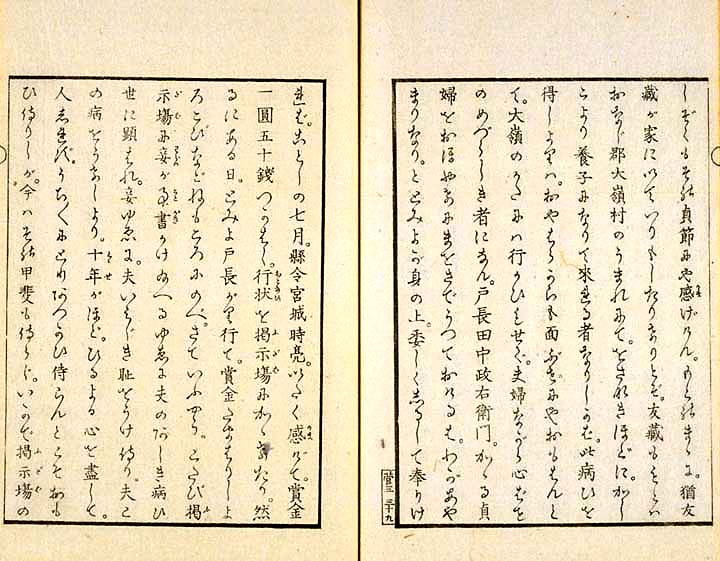 も其貞節にや感げけん。もとのまゝに。猶友
藏が家に たりけりとぞ。友藏ももとは
おなじ郡大嶺村のうまれにて。をさなきほどに。かし
こより養子になりて來れる者なりしかば。此病ひを
得しよりは。おやはらからも面ぶせにやおもひけん
て。大嶺のかたには行かひもせで。夫婦ながら心ぼそ
のめづらしき者になん。戸長田中政右衛門。かゝる貞
婦をおほやけにまをさでうつておけるは。わがあや
まりなり。ととみよが身の上。委しくしるして奉りけ
三十九
れば。ことしの七月。縣令宮城時亮。いたく感でて。賞金
一圓五十錢つかはし。行状を掲示場にかゝげたり。然
るにある日。とみよ戸長がり行て。賞金たまはりしよ
ろこびなどねもころにのべ。さていふやう。こたび掲
示場に妾が事書かけ給へるゆゑに夫のあしき病ひ
世に顕はれ。妾ゆゑに。夫いみじき耻をうけ侍り。夫こ
の病をうけしより。十年がほど。ひるよる心を盡して。
人しれず。うち〳〵にとりあつかひ侍らんとこそおも
ひ侍りしが。今はその甲斐も侍らじ。いかで掲示場の